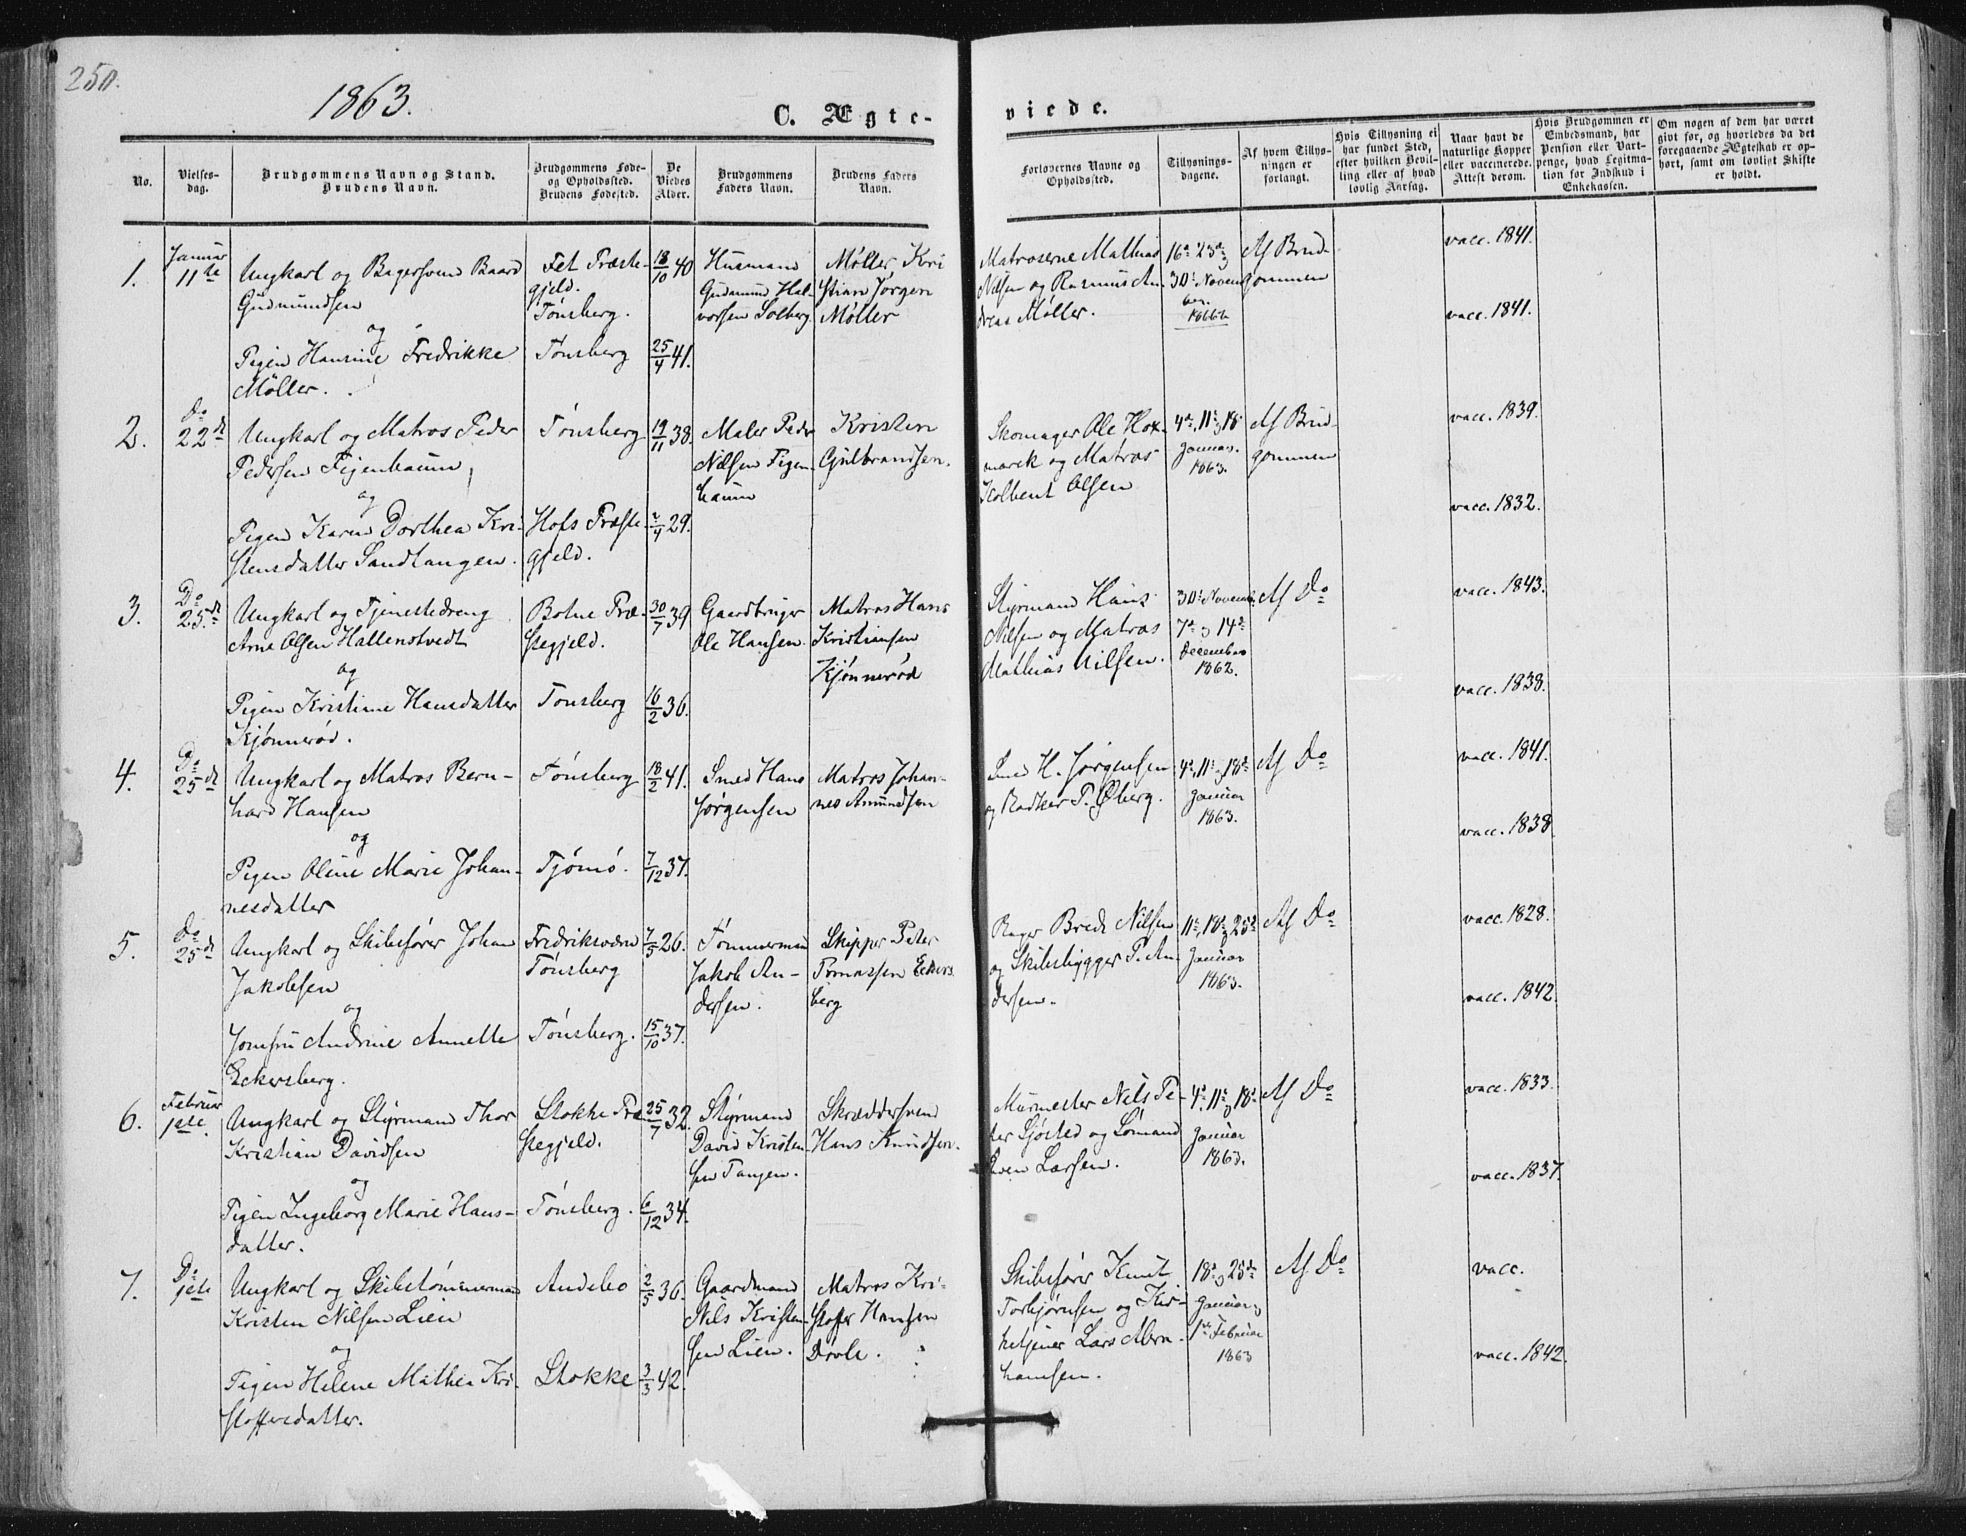 250.
1863.
C. Ægte-
viede.
No.
Vielses-
dag.
Brudgommens Navn og Stand.
Brudens Navn.
Brudgommens Føde-
og Opholdssted.
Brudens Fødested.
De
Viedes
Alder.
Brudgommens
Faders Navn.
Brudens Faders
Navn.
Forlovernes Navne og
Opholdssted.
Tillysnings-
dagene.
Af hvem Tillys-
ningen er
forlangt.
Hvis Tillysning ei
har fundet Sted,
efter hvilken Bevil-
ling eller af hvad
lovlig Aarsag.
Naar havt de
naturlige Kopper
eller vaccinerede.
Attest derom.
Hvis Brudgommen er
Embedsmand, har
Pension eller Vart-
penge, hvad Legitima-
tion for Indskud i
Enkekassen.
Om nogen af dem har været
gift før, og hvorledes da det
foregaaende Ægteskab er op-
hørt, samt om lovligt Skifte
er holdt.
1.
Januar
11te
Ungkarl og Bagersvend Baard
Gudmundsen
og
Pigen Hansine Fredrikke
Møller.
Fet Præste-
gjeld.
Tønsberg.
Tønsberg
18/10 40
25/4 41.
Husmand
Gudmund Hal-
vorsen Solberg
Møller, Kri
stian Jørgen
Møller
Matroserne Mathias
Nilsen og Rasmus An-
dreas Møller.
16de 23de
30te Novem
ber.
1862
Af Brud-
gommen
vacc. 1841.
vacc. 1841.
2.
Do
22de
Ungkarl og Matros Peder
Pedersen Figenbaum
og
Pigen Karen Dorthea Kri-
stensdatter Sandtangen.
Tønsberg
Hofs Præste-
gjeld.
19/11 38.
2/4 29.
Maler Peder
Nilsen Figen-
baum
Kristen
Gulbrandsen.
Skomager Ole Hox-
mark og Matros
Kolbent Olsen
4de, 11te 18de
Januar
1863.
Af Brud-
gommen
vacc. 1839.
vacc. 1832.
3.
Do
25de
Ungkarl og Tjenestedreng
Arne Olsen Hallenstvedt
og
Pigen Kristine Hansdatter
Kjønnerød.
Botne Præ-
stegjeld.
Tønsberg
30/7 39
16/2 36.
Gaardbruger
Ole Hansen.
Matros Hans
Kristiansen
Kjønnerød
Styrmand Hans
Nilsen og Matros
Mathias Nilsen.
30te Novemb.
7de og 14de
December
1862.
Af Do
vacc. 1843.
vacc. 1838.
4.
Do
25de
Ungkarl og Matros Bern-
hard Hansen
og
Pigen Oline Marie Johan-
nesdatter
Tønsberg
Tjømø.
18/2 41.
7/12 37.
Smed Hans
Jørgensen
Matros Johan-
nes Amundsen
Smed H. Jørgensen
og Bødker P. Øberg.
4de, 11te 18de
Januar
1863.
Af Do
vacc. 1841.
vacc. 1838
5.
Do
25de
Ungkarl og Skibsfører Johan
Jakobsen
og
Jomfru Andrine Annette
Eckersberg.
Fredriksværn
Tønsberg
Tønsberg.
7/5 26.
15/10 37.
Tømmermand
Jakob An-
dersen.
Skipper Peter
Tomassen Eckers
berg
Bager Brede Nilsen
og Skibsbygger P. An-
dersen.
11te, 18de 25de
Januar
1863.
Af Do
vacc. 1828.
vacc. 1842.
6.
Februar
1ste.
Ungkarl og Styrmand Thor
Kristian Davidsen
og
Pigen Ingeborg Marie Hans-
datter.
Stokke Præ
stegjeld.
Tønsberg.
25/7 32.
6/12 34.
Styrmand
David Kristen-
sen Tangen.
Skræddersvend
Hans Knudsen.
Murmester Nils Pe-
ter Sjøsted og Sømand
Even Larsen.
4de, 11te 18de
Januar
1863.
Af Do
vacc. 1833.
vacc. 1837.
7.
Do
1ste
Ungkarl og Skibstømmermand
Kristen Nilsen Lien
og
Pigen Helene Mathea Kri-
stoffersdatter.
Andebo
Stokke
2/5 36.
3/3 42.
Gaardmand
Nils Kristen-
sen Lien.
Matros Kri-
stoffer Hansen
Drole.
Skibsfører Knut
Torbjørnsen og Kir-
ketjener Lars Abra-
hamsen.
18de 25de
Januar og
1ste Februar
1863
Af Do
vacc.
vacc. 1842.